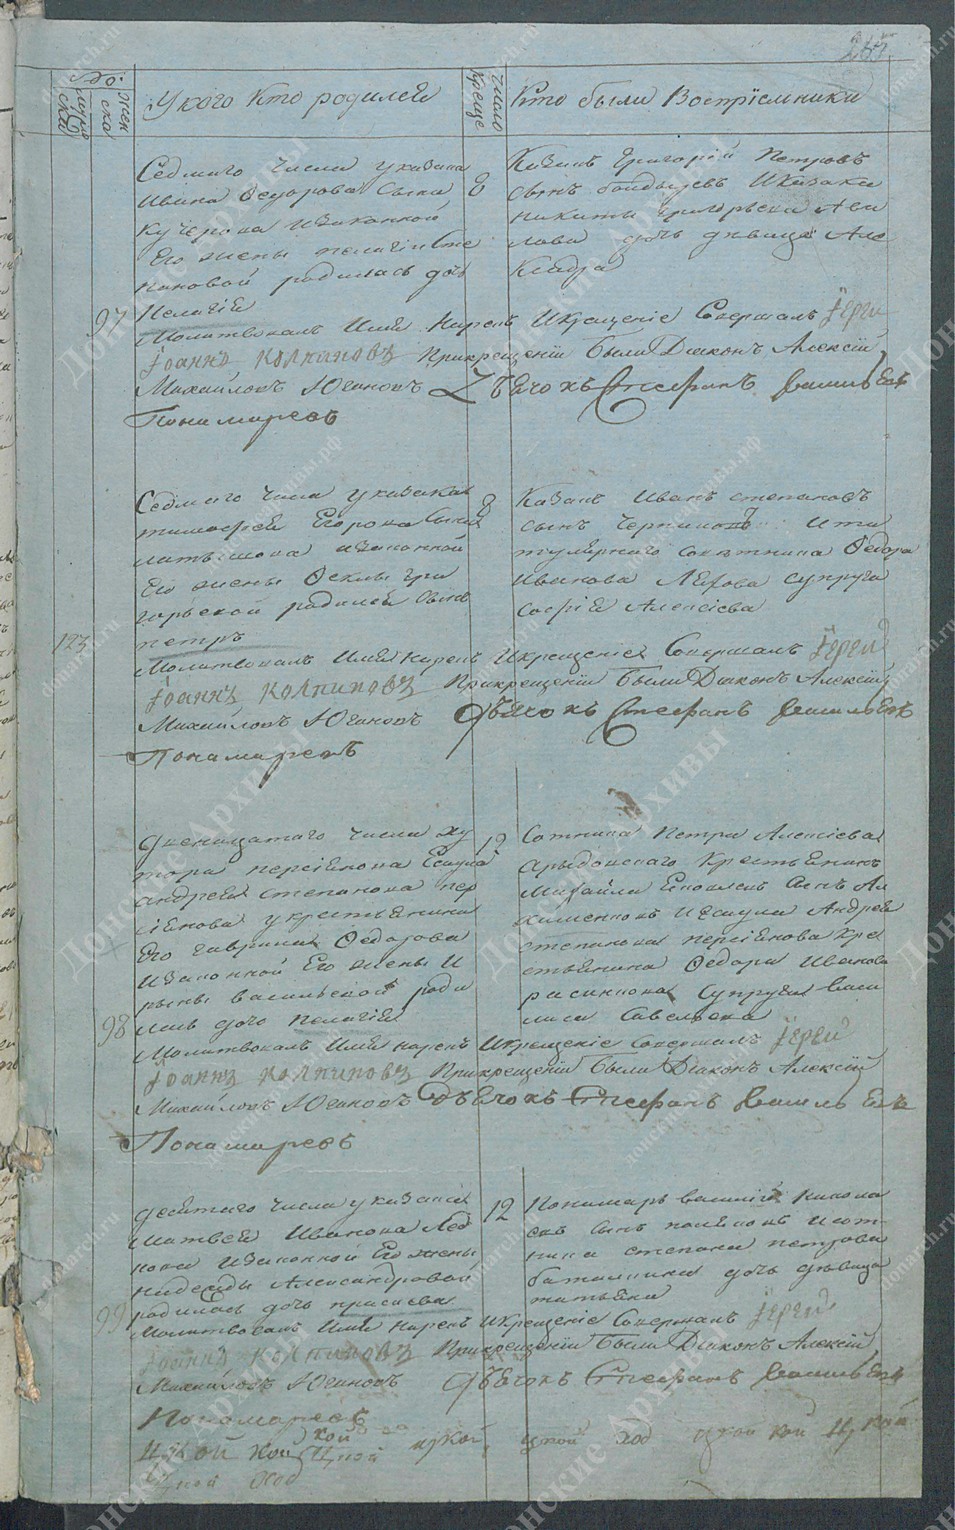 265
До:
Муже
ска
Жен
ска
У кого кто родился
Число
Креще
Кто были Восприемники
Седмаго числа у казака
Ивана Федорова Сына
Кучерова и законной
Его жены Пелагiи Сте
пановой родилась дочь
97 Пелагiя
8
Казакъ Григорiй Петровъ
Сынъ и казака
Никиты Григорьева
дочь девица Але
ксандра
Молитвовалъ Имя Нарекъ И крещенiе Совершалъ Iерей
Iоаннъ Колпиковъ При крещенiи были Дiаконъ Алексiй
Михайловъ Югановъ Дьячокъ Стефанъ Васильевъ
Пономаревъ
Седмаго числа у казака
тимофея Егорова Сына
латышова и законной
Его жены Феклы Гри
горьевой родился Сынъ
123 петръ
8
Казакъ Иванъ степановъ
сынъ и ти
тулярнаго советника Федора
Иванова супруга
Софiя Алексiева
Молитвовалъ Имя нарекъ И крещенiе Совершалъ Iерей
Iоаннъ Колпиковъ При крещенiи были Дiаконъ Алексiй
Михайловъ Югановъ Дьячокъ Стефанъ Васильевъ
Пономаревъ
двенацатаго числа ху
тора персiянова Есаула
андрея степанова пер
сiянова у крестьянина
Его гаврила Федорова
и законной Его жены И
рины васильевой роди
98 лась дочь Пелагiя
12
Сотника Петра Алексiева
крестьянинъ
Михайла Яковлевъ Сынъ
и есаула Андрея
степанова персiянова кре
стьянина Федора Иванова
супруга васи
лиса Савельева
Молитвовалъ Имя нарекъ И крещенiе Совершалъ Iерей
Iоаннъ Колпиковъ При крещенiи Были Дiаконъ Алексiй
Михайловъ Югановъ Дьячокъ Стефанъ Васильевъ
Пономаревъ
десятаго числа у казака
Матвея Иванова Лео
нова и законной Его жены
надежды Александровой
99 родилась дочь
12
Пономарь василiй Никола
евъ сынъ и сот
ника степана петрова
дочь девица
татьяна
Молитвовалъ Имя Нарекъ И крещенiе Совершалъ Iерей
Iоаннъ Колпиковъ При крещенiи Были Дiаконъ Алексiй
Михайловъ Югановъ Дьячокъ Стефанъ Васильевъ
Пономаревъ